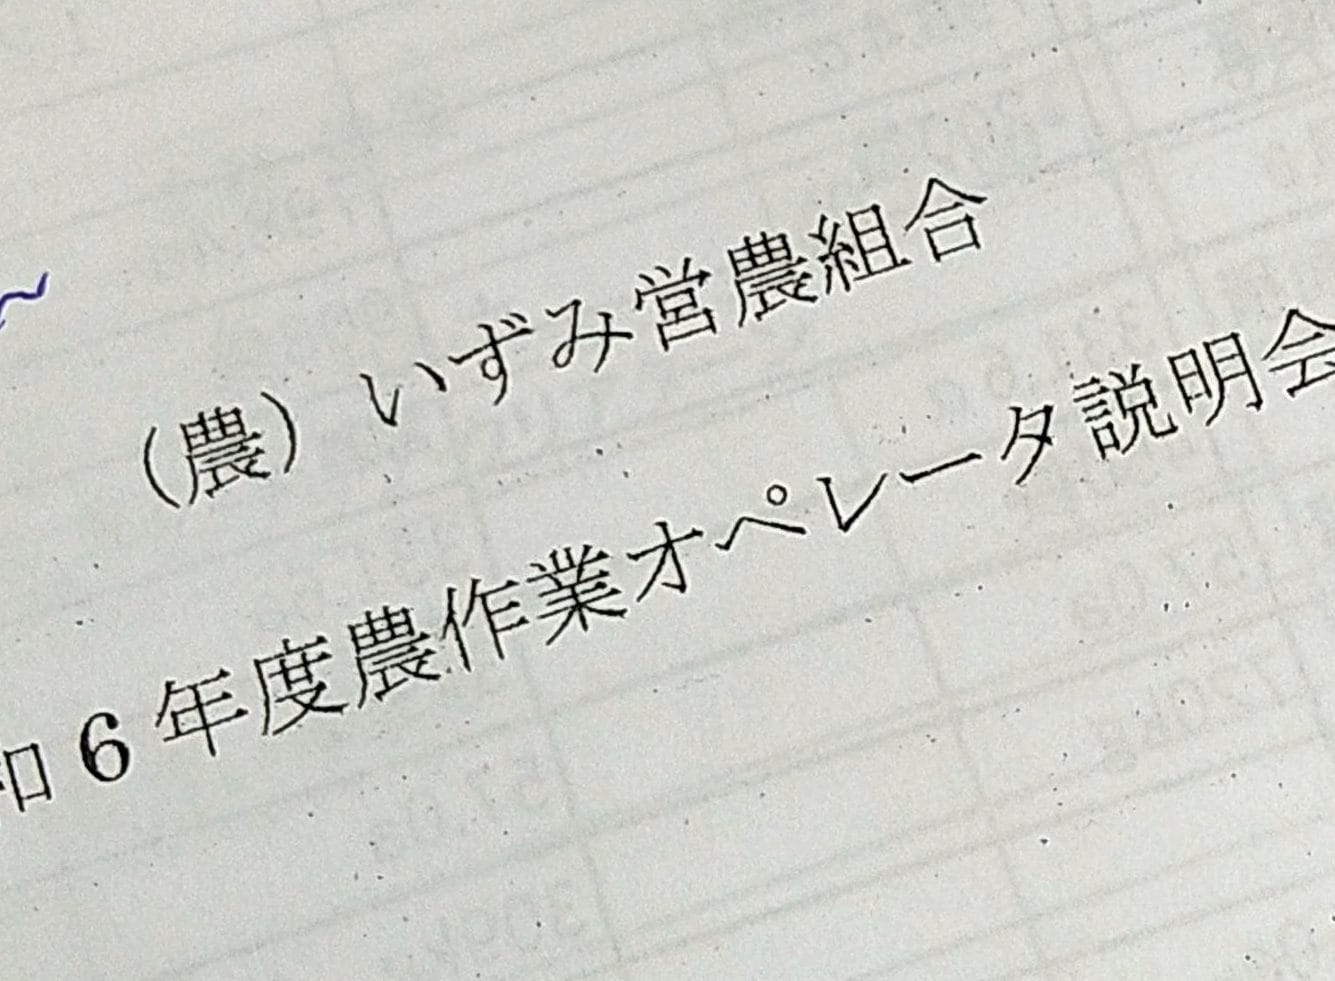 （農）いずみ営農組合
和６年度農作業オペレータ説明会